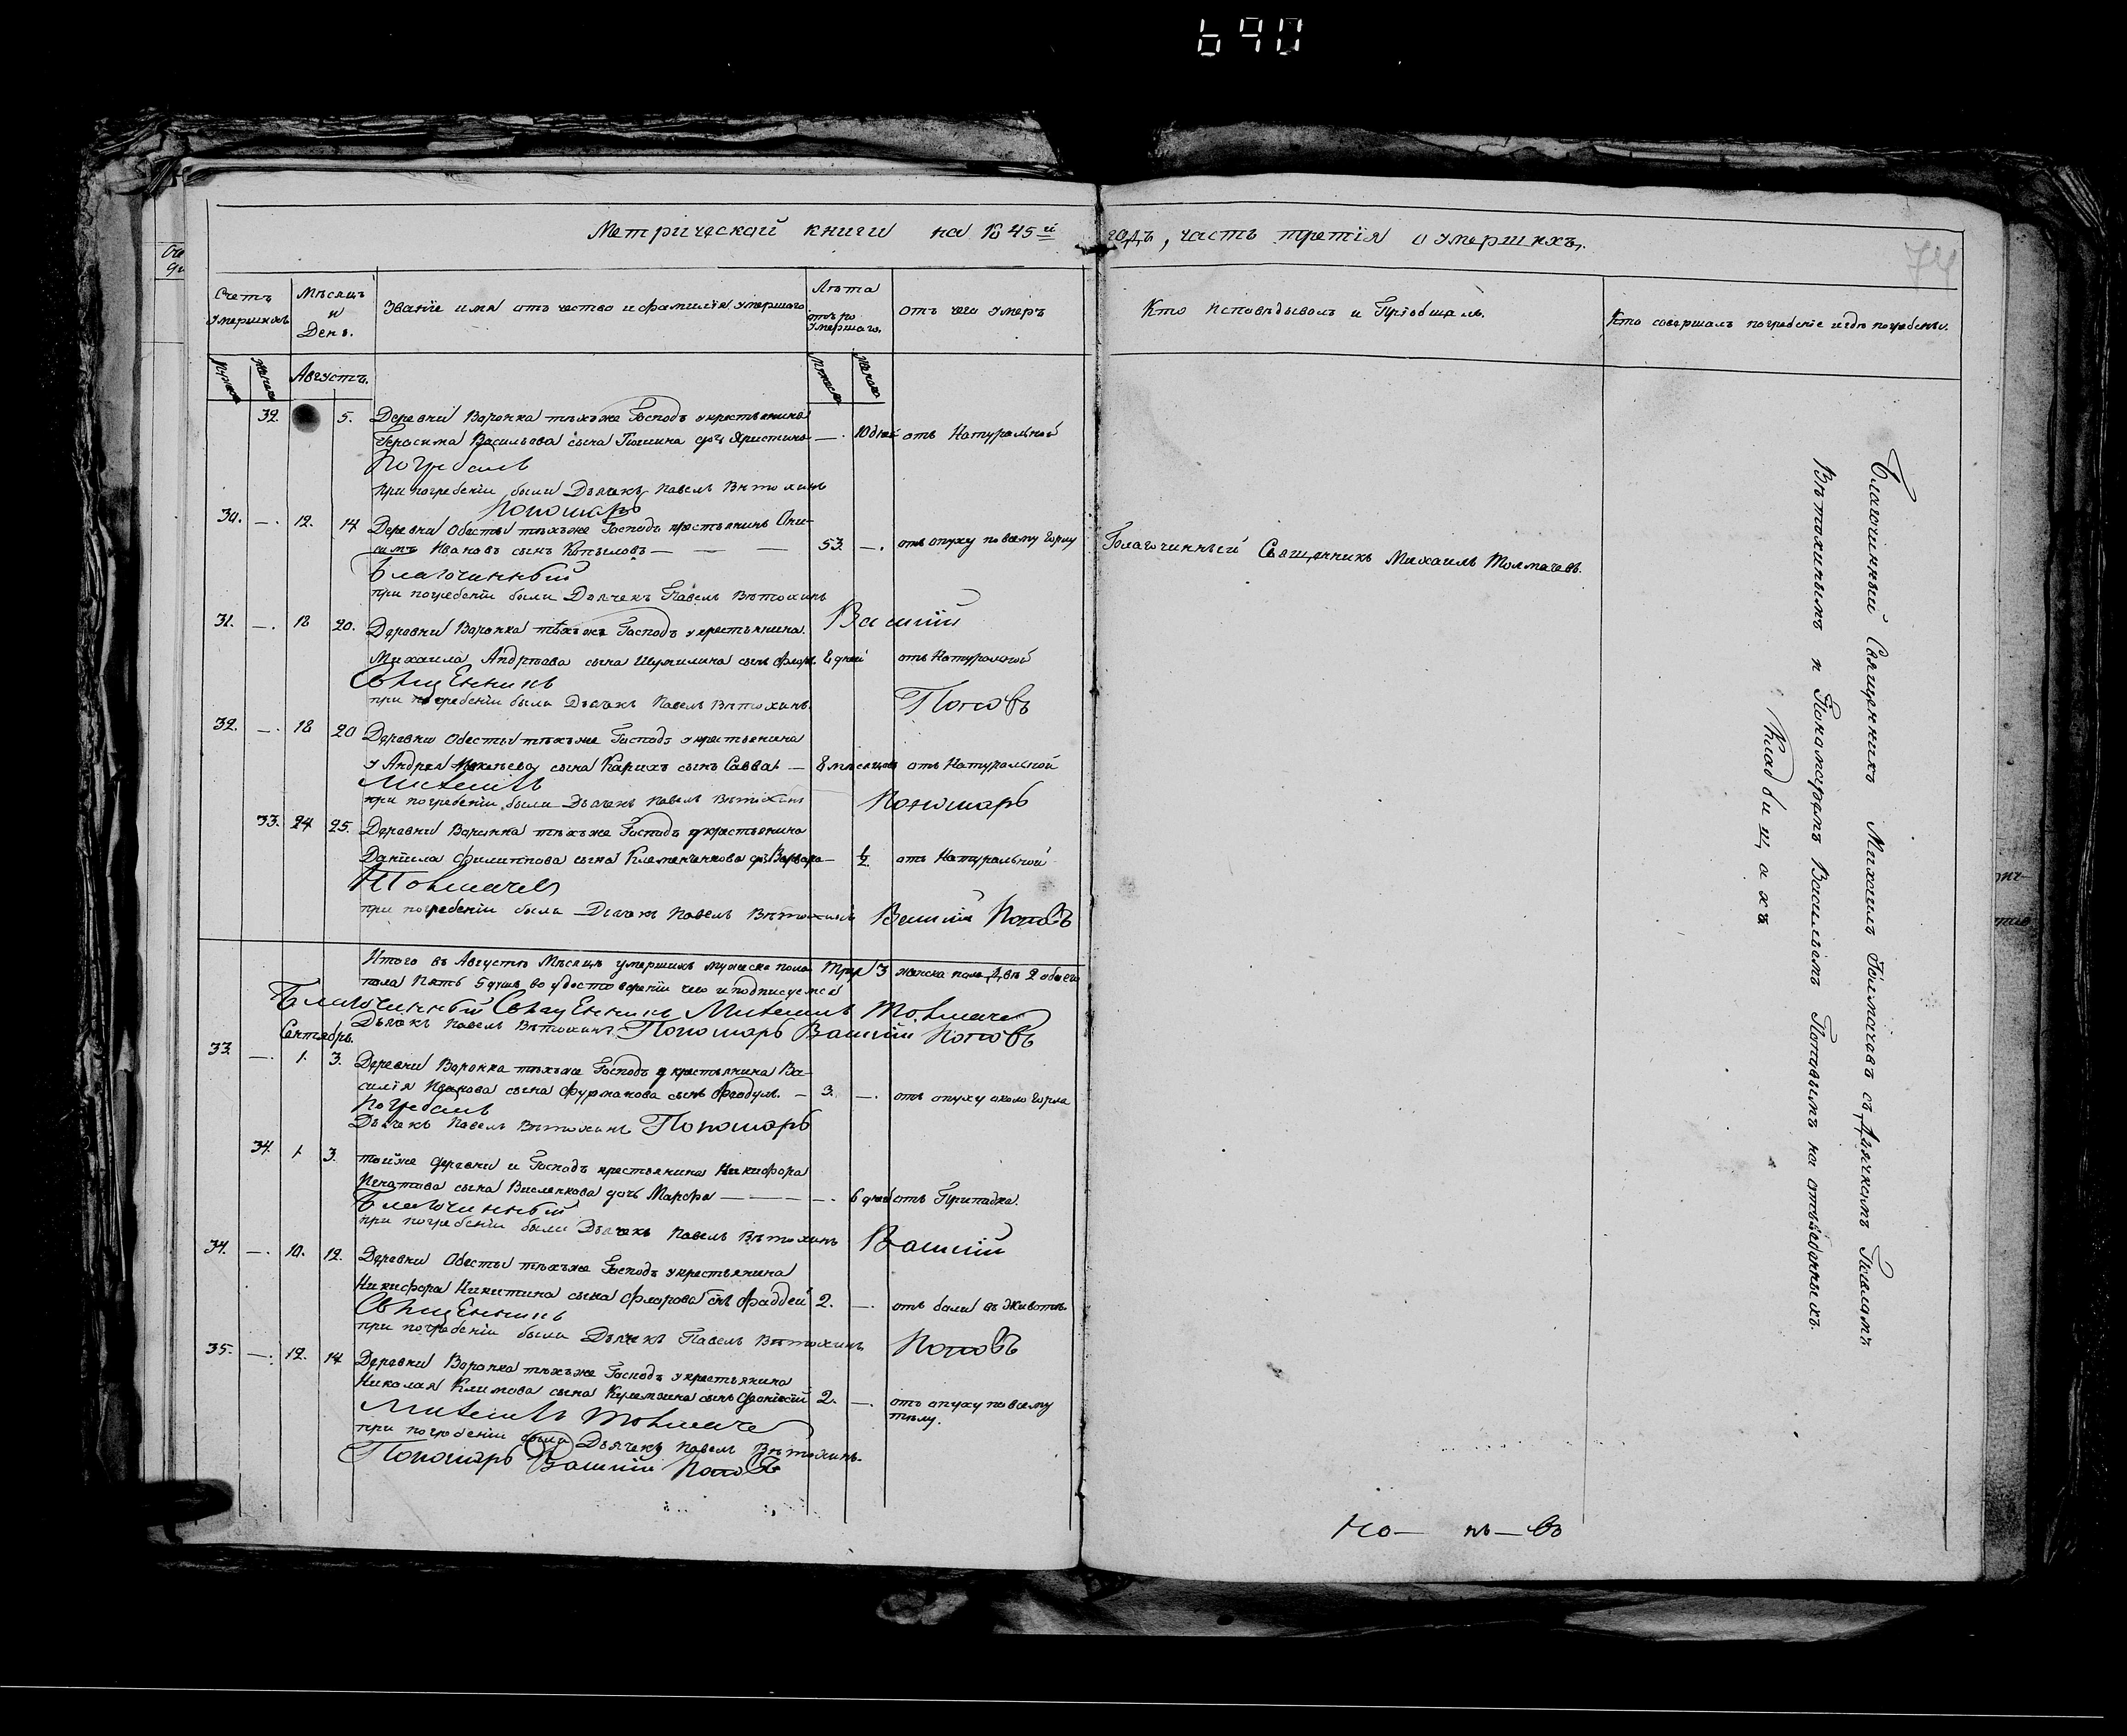 690
Метрической книги на 1845й годъ, часть третія о умершихъ.
74
Счетъ умершихъ
Мѣсяцъ и День.
Званіе имя отъ чество и фамилія умершаго
Лѣта умершаго.
отъ чего умеръ
Кто исповѣдывалъ и Пріобщалъ.
Кто совершалъ погребеніе и гдѣ погребены.
Августъ.
32. 5. Деревни Воронка тѣхъже Господъ у крестьянина
Герасима Васильева сына дочь — 10 дней отъ Натуральной
Погребалъ
при погребеніи были Дьячекъ Павелъ Вѣтохинъ
Пономарь
30. —. 12. 14 Деревни Обесты тѣхъже Господъ крестьянинъ Они-
симъ Ивановъ сынъ Копыловъ — — — 53. —. отъ опуху по всему горлу
Благочинный Священникъ Михаилъ Толмачевъ.
Благочинный
при погребеніи были Дьячекъ Павелъ Вѣтохинъ
31. —. 18 20. Деревни Воронка тѣхъже Господъ у крестьянина Василій
Михаила Андрѣева сына Шумилина сынъ Флоръ 8 дней отъ Натуральной
Священникъ
при погребеніи были Дьячекъ Павелъ Вѣтохинъ. Поповъ
32. —. 18 20 Деревни Обесты тѣхъже Господъ у крестьянина
у Андрея сына сынъ Савва — 8 мѣсяцовъ отъ Натуральной
Михаилъ
при погребеніи были Дьячекъ Павелъ Вѣтохинъ Пономарь
33. 24 25. Деревни Воронка тѣхъже Господъ у крестьянина
Даніила Филиппова сына дочь Варвара — ½ отъ Натуральной
Толмачевъ
при погребеніи были Дьячекъ Павелъ Вѣтохинъ Василій Поповъ
Итого въ Августѣ Мѣсяцѣ умершихъ мужеска пола Три 3 женска пола Двѣ 2 обоего
пола Пять 5 душъ во удостовереніи чего и подписуемся
Благочинный Священникъ Михаилъ Толмачев
Дьячекъ Павелъ Вѣтохинъ Пономарь Василій Поповъ
Сентябрь.
33. —. 1. 3. Деревни Воронка тѣхъже Господъ у крестьянина Ва-
силія Иванова сына Фурманова сынъ Феодулъ. — 3. —. отъ опуху около горла
Погребалъ
Дьячекъ Павелъ Вѣтохинъ Пономарь
34. 1. 3. тойже деревни и Господъ крестьянина Никифора
Игнатова сына дочь Марфа — — —. 6 дней отъ Припадка.
Благочинный
при погребеніи были Дьячекъ Павелъ Вѣтохинъ Василій
34. —. 10. 12. Деревни Обесты тѣхъже Господъ у крестьянина
Никифора Никитина сына Флорова сынъ Фаддей 2. —. отъ боли въ животѣ
Священникъ
при погребеніи были Дьячекъ Павелъ Вѣтохинъ Поповъ
35. —. 12. 14 Деревни Воронка тѣхъже Господъ у крестьянина
Николая Климова сына сынъ 2. —. отъ опуху по всему
тѣлу.
Михаилъ Толмаче
при погребеніи были Дьячекъ Павелъ Вѣтохинъ.
Пономарь Василій Поповъ
Благочинный Священникъ Михаилъ Толмачевъ съ Дьячкомъ Павломъ
Вѣтохинымъ и Пономаремъ Василіемъ Поповымъ на отведенныхъ
Кладбищахъ